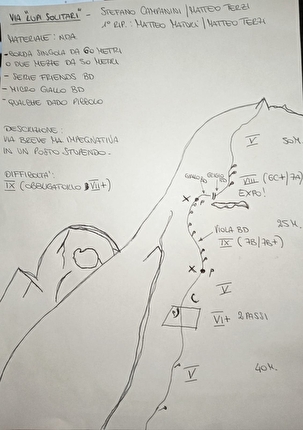 VIA "LUPI SOLITARI" - STEFANO CAMPANINI/MATTEO TERZI
1° RIP.: MATTEO MATURI/MATTEO TERZI
MATERIALE: NDA
- CORDA SINGOLA DA 60 METRI
O DUE MEZZE DA 50 METRI
- SERIE FRIENDS BD
- MICRO GIALLO BD
- QUALCHE DADO PICCOLO
DESCRIZIONE:
VIA BREVE MA IMPEGNATIVA
IN UN POSTO STUPENDO.
DIFFICOLTÀ:
IX (OBBLIGATORIO VII+)
V 50M.
VIII (6C+/7A)
EXPO!
BD
BD
X P
25M.
VIOLA BD
IX (7B/7B+)
X P
V
VI+ 2 PASSI
V
40M.